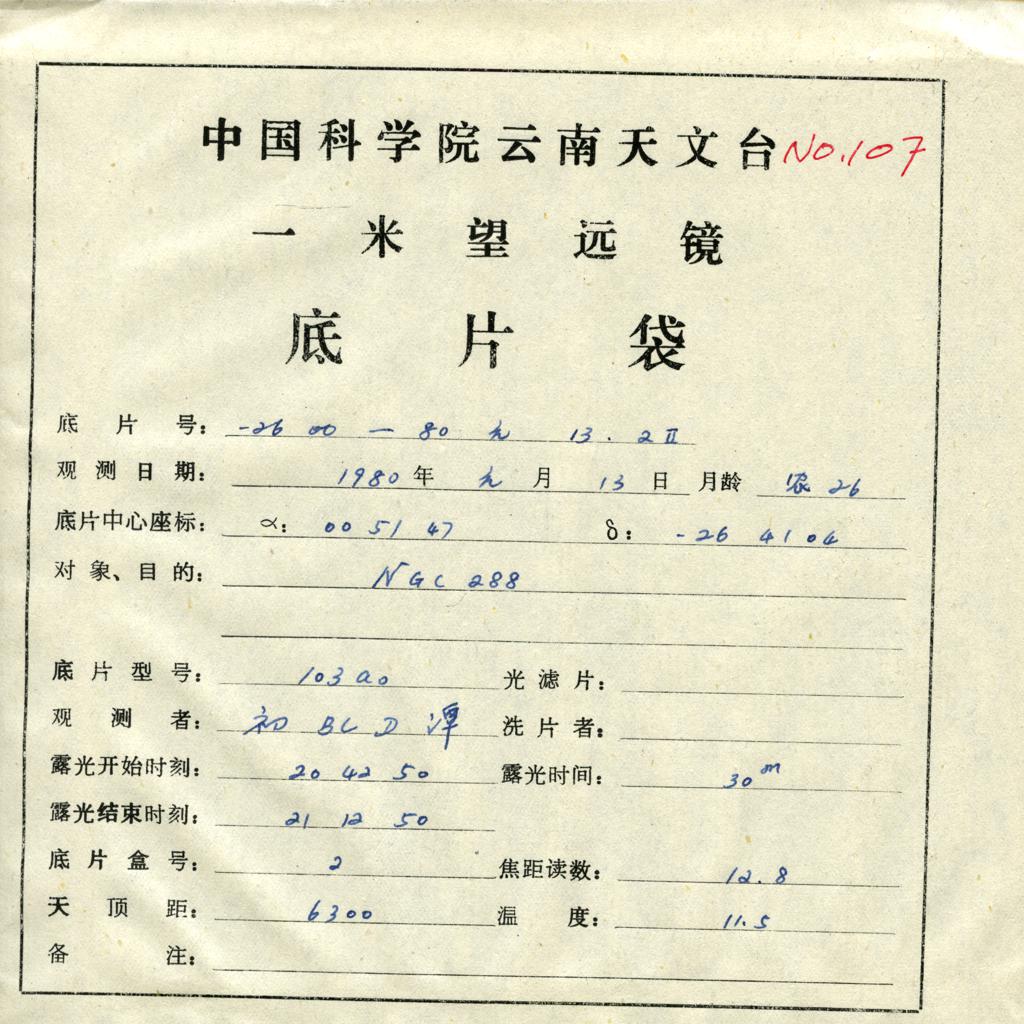 中国科学院云南天文台 No.107
一米望远镜
底片袋
底片号: -26 00 — 80 元 13. 2 II
观测日期: 1980 年 元 月 13 日 月龄 农 26
底片中心座标: α: 00 51 47 δ: -26 41 04
对象、目的: NGC 288
底片型号: 103a0 光滤片:
观测者: 初 BL D 潭 洗片者:
露光开始时刻: 20 42 50 露光时间: 30m
露光结束时刻: 21 12 50
底片盒号: 2 焦距读数: 12.8
天顶距: 6300 温度: 11.5
备注: